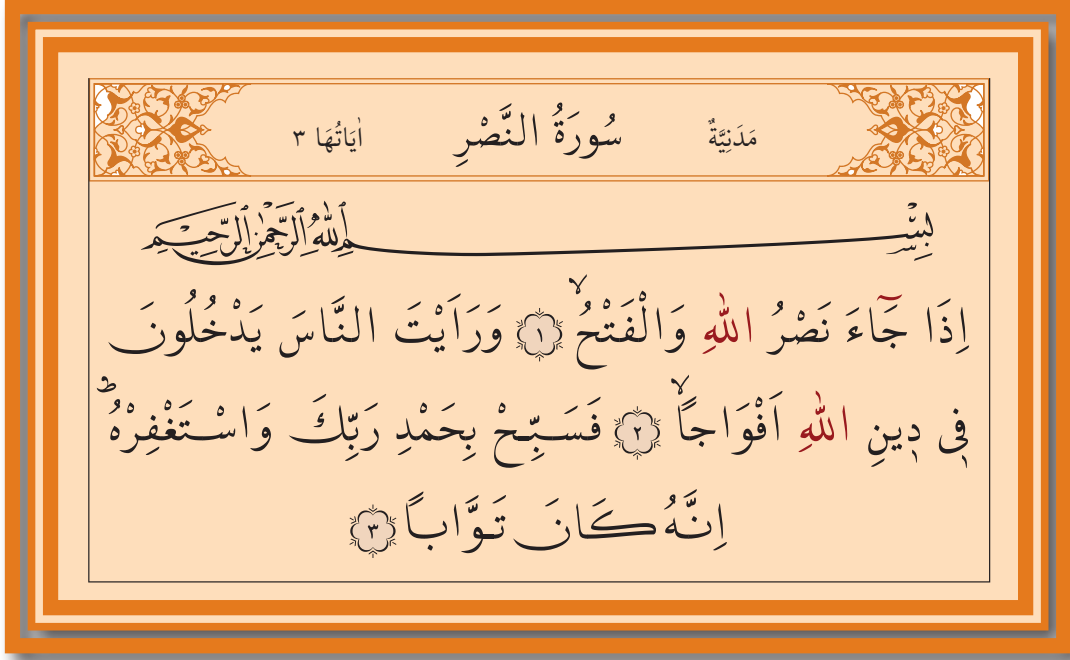 مَدَنِيَّةٌ سُورَةُ النَّصْرِ اٰيَاتُهَا ٣
بِسْمِ اللّٰهِ الرَّحْمٰنِ الرَّحِيمِ
اِذَا جَٓاءَ نَصْرُ اللّٰهِ وَالْفَتْحُۙ ١ وَرَاَيْتَ النَّاسَ يَدْخُلُونَ
فٖي دٖينِ اللّٰهِ اَفْوَاجاًۙ ٢ فَسَبِّحْ بِحَمْدِ رَبِّكَ وَاسْتَغْفِرْهُؕ
اِنَّهُ كَانَ تَوَّاباً ٣